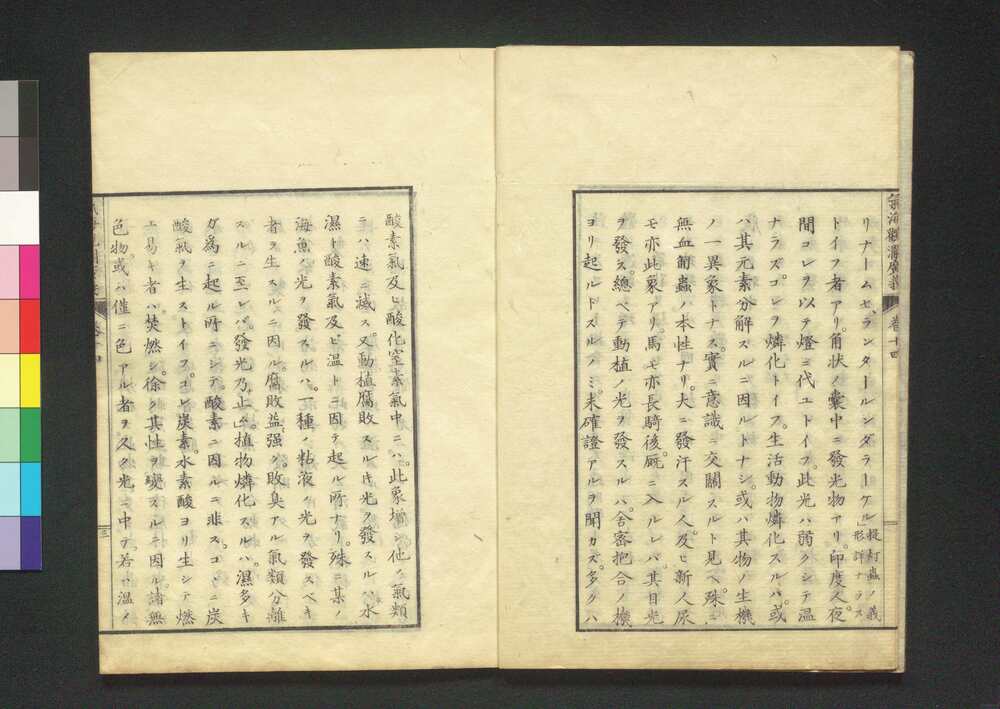 氣海觀瀾廣義 卷十四
リナームセ、ランタールンダラーケル 提灯蟲ノ義形詳ナラス
トイフ者アリ。角状ノ嚢中ニ發光物アリ。印度人夜
間コレヲ以テ燈ニ代ユトイフ。此光ハ弱クシテ温
ナラズ。コレヲ燐化トイフ。生活動物燐化スルハ。或
ハ其元素分解スルニ因ルトナシ。或ハ其物ノ生機
ノ一異象トナス。實ニ意識ニ交關スルト見ヘ。殊ニ
無血匍蟲ノ本性ナリ。大ニ發汗スル人。及ヒ新人尿
モ亦此象アリ。馬モ亦長騎後。厩ニ入ルレバ。其目光
ヲ發ス。總ベテ動植ノ光ヲ發スルハ。舎密抱合ノ機
ヨリ起ルトスルノミ。未確證アルヲ聞カズ。多クハ
酸素氣及ヒ酸化窒素氣中ニハ。此象増シ。他ノ氣類
ニハ速ニ滅ス。又動植腐敗スルキ光ヲ發スルハ。水
濕ト酸素氣及ビ温トニ因テ起ル所ナリ。殊ニ某ノ
海魚ノ光ヲ發スルハ。一種ノ粘液ノ光ヲ發スベキ
者ヲ生スルニ因ル。腐敗益強ク。敗臭アル氣類分離
スルニ至レバ。發光乃止ム。植物燐化スルハ。濕多キ
ガ為ニ起ル所ニシテ酸素ニ因ルニ非ス。コヽニ炭
酸氣ヲ生ストイフ。コレ炭素。水素酸ヨリ生シテ燃
エ易キ者ハ。焚燃シ。徐ク其性ヲ變スルニ因ル。諸無
色物。或ハ僅ニ色アル者ヲ久ク光ニ中テ。若クハ温ノ
三